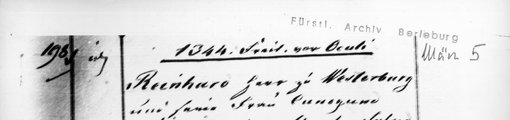 Fürstl. Archiv Berleburg
198
1344. Freit. vor Oculi
März 5
Reinhard Herr zu Westerburg
und seine Frau Cunegund